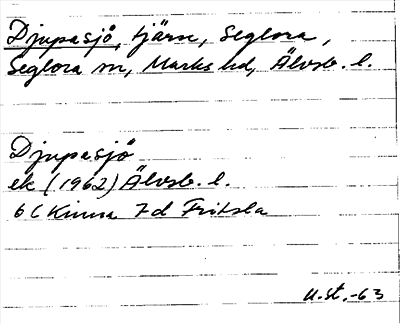 Djupasjö, tjärn, Seglora,
Seglora sn, Marks hd, Älvsb. l.
Djupasjö
ek (1962) Älvsb. l.
6 C Kinna 7d Fritsla
U.st.-63